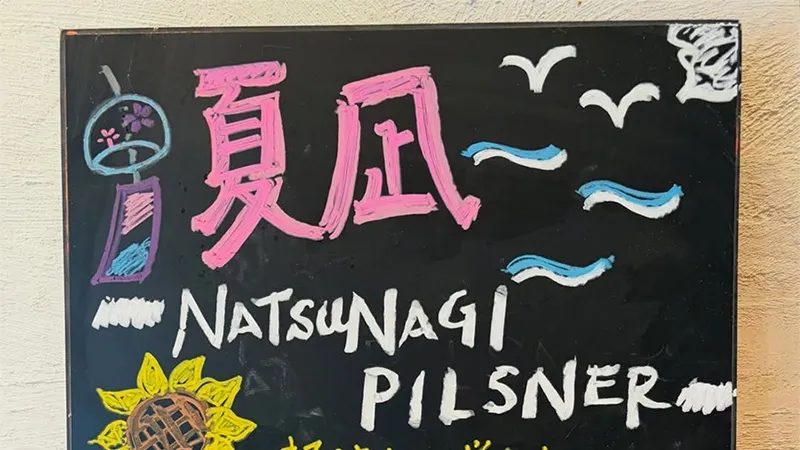 夏凪
NATSUNAGI
PILSNER